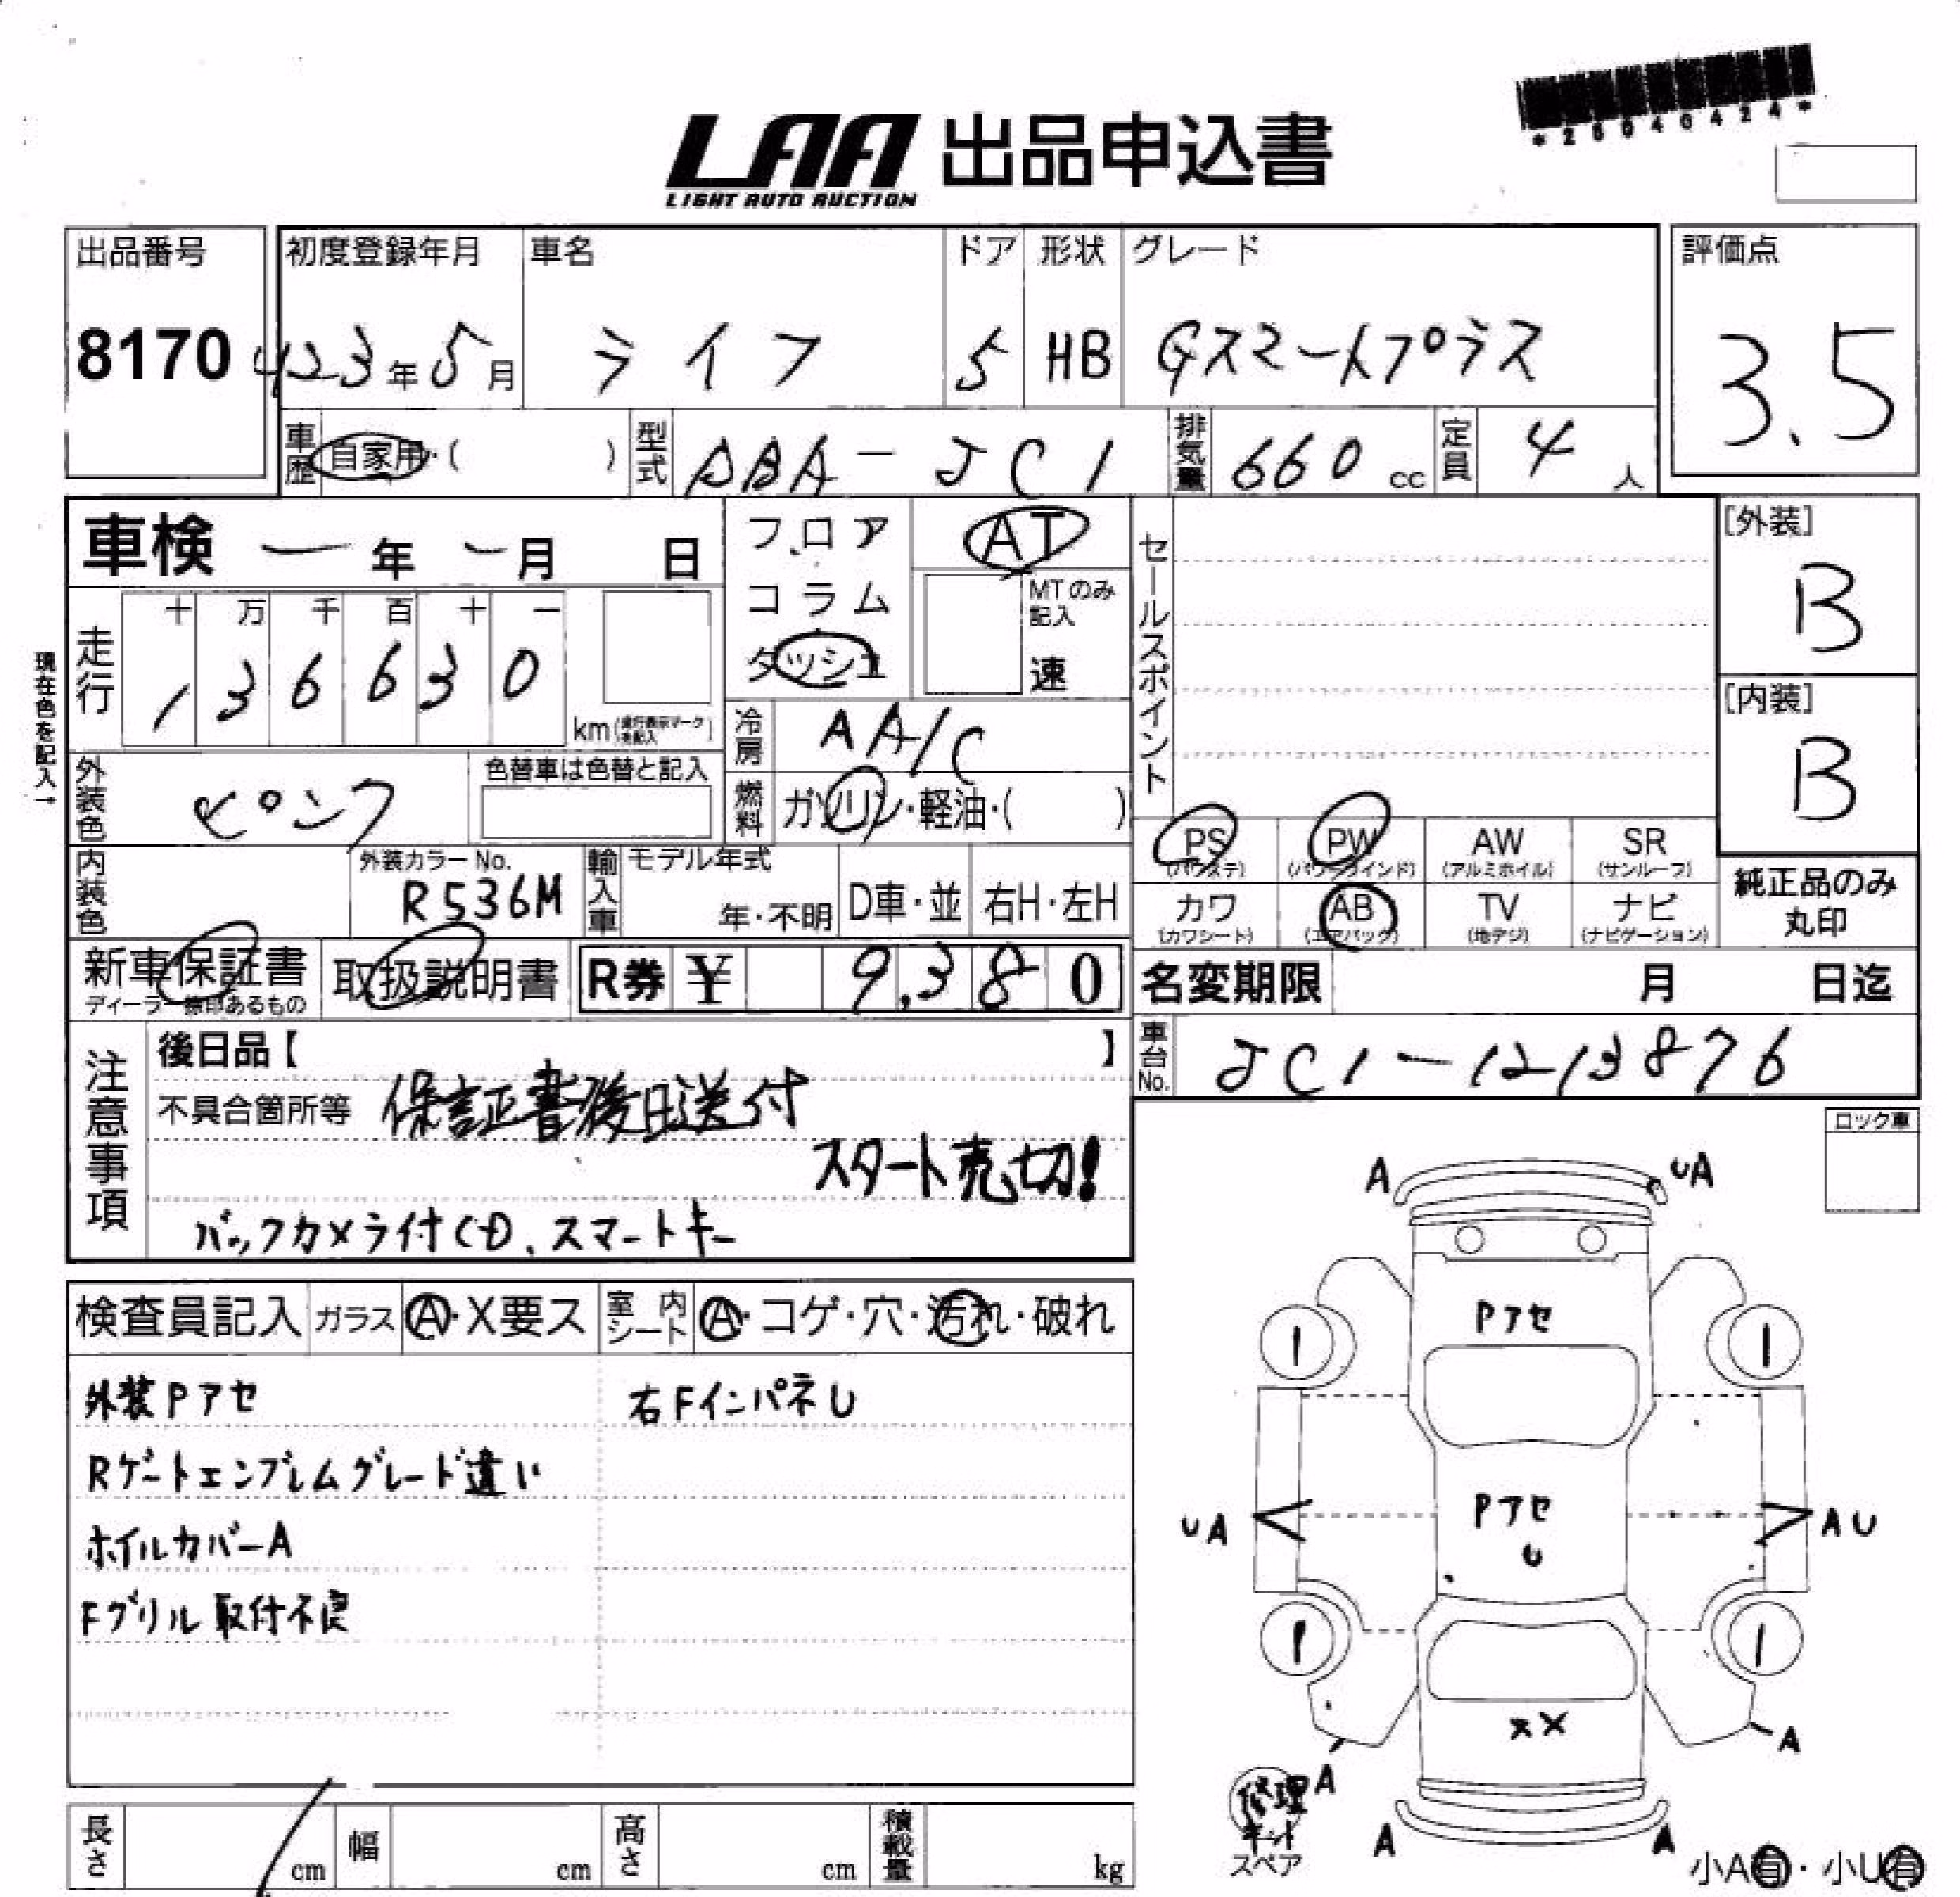 *26040424*
LAA 出品申込書
LIGHT AUTO AUCTION
出品番号
8170
初度登録年月
H23年5月
車名
ライフ
ドア
5
形状
HB
グレード
Gスマートプラス
評価点
3.5
車歴
自家用・( )
型式
ABA-JC1
排気量
660 cc
定員
4人
車検 ー年 ー月 日
フロア
コラム
ダッシュ
AT
MTのみ記入
速
セールスポイント
[外装]
B
[内装]
B
現在色を記入→
走行
十 万 千 百 十 一
1 3 6 6 3 0
km(走行表示マークを記入)
冷房
AA/C
燃料
ガソリン・軽油・( )
外装色
ピンク
色替車は色替と記入
内装色
外装カラーNo.
R536M
輸入車
モデル年式
年・不明
D車・並
右H・左H
PS
(パワステ)
PW
(パワーウインド)
AW
(アルミホイル)
SR
(サンルーフ)
カワ
(カワシート)
AB
(エアバック)
TV
(地デジ)
ナビ
(ナビゲーション)
純正品のみ
丸印
新車保証書
ディーラー捺印あるもの
取扱説明書
R券 ¥ 9,380
名変期限 月 日迄
車台No.
JC1-1213876
注意事項
後日品【 】
不具合箇所等 保証書後日送付
スタート売切!
バックカメラ付CD、スマートキー
ロック車
検査員記入
ガラス
A・X要ス
室内シート
A・コゲ・穴・汚れ・破れ
外装Pアセ
右FインパネU
Rゲートエンブレムグレード違い
ホイルカバーA
Fグリル取付不良
A
UA
Pアセ
1
1
UA
Pアセ
U
AU
1
1
XX
A
A
修理
キット
スペア
A
A
小A有・小U有
長さ
cm
幅
cm
高さ
cm
積載量
kg